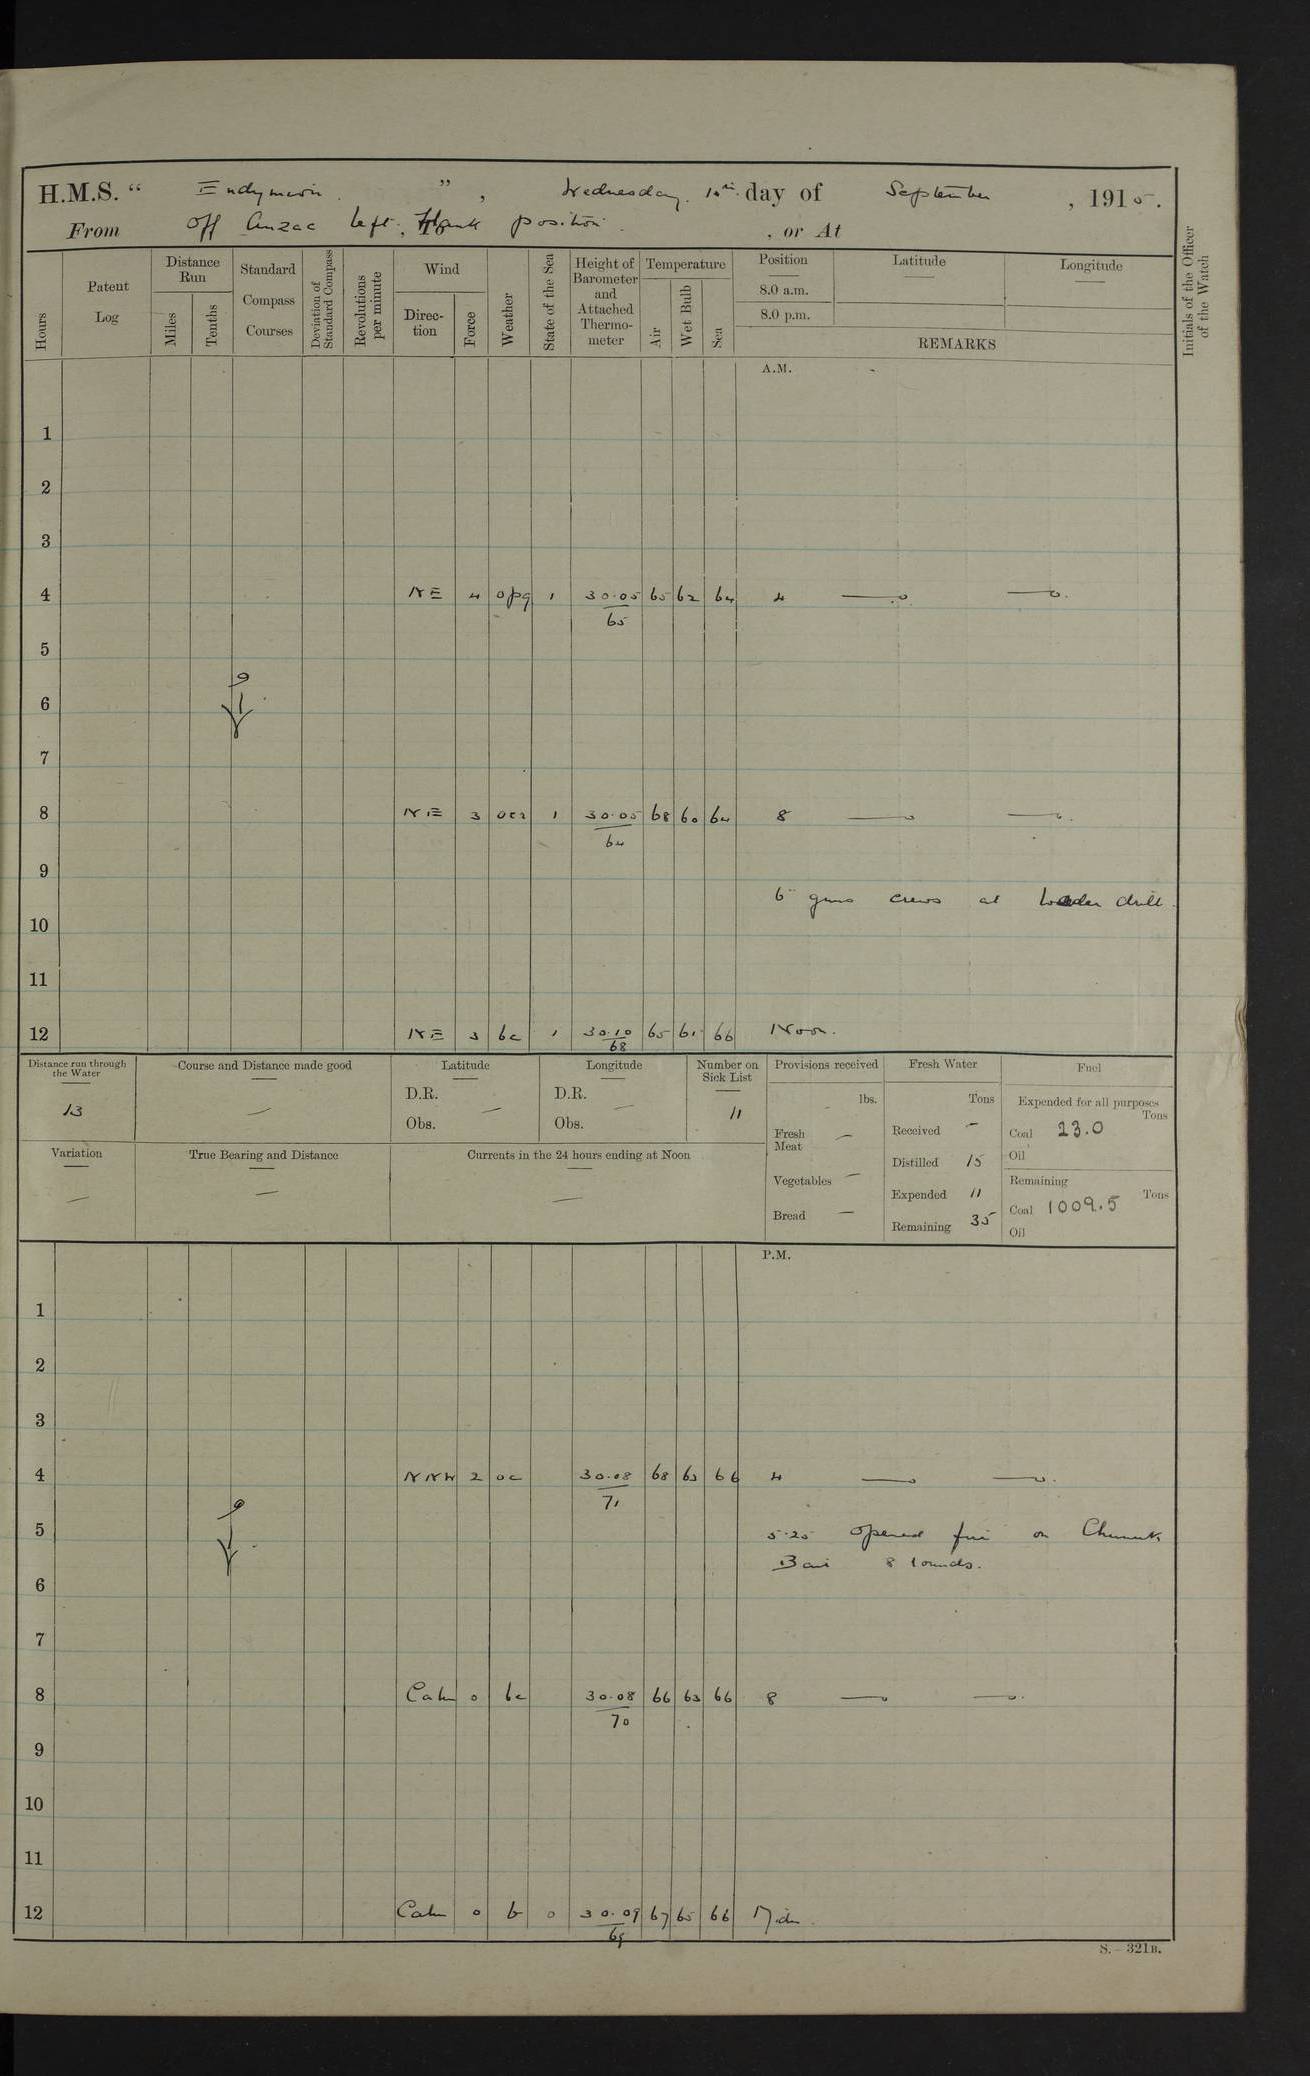 H.M.S. " Endymion ", Wednesday day of September, 1915.
From Off Anzac left flank position , or At
Hours
Patent Log
Distance Run
Miles
Tenths
Standard Compass Courses
Deviation of Standard Compass
Revolutions per minute
Wind
Direction
Force
Weather
State of the Sea
Height of Barometer and Attached Thermometer
Temperature
Air
Wet Bulb
Sea
Position
Latitude
Longitude
8.0 a.m.
8.0 p.m.
REMARKS
Initials of the Officer of the Watch
A.M.
1
2
3
4 NE 4 opq 1 30.05 65 62 64 4
65
5
6
7
8 NE 3 1 30.05 68 60 64 8
64
9
6" guns crews at loader drill.
10
11
12 NE 3 bc 1 30.10 65 61 66 Noon.
68
Distance run through the Water
13
Course and Distance made good
—
Latitude
D.R.
Obs.
—
Longitude
D.R.
Obs.
—
Number on Sick List
11
Provisions received
lbs.
Fresh Meat —
Vegetables —
Bread —
Fresh Water
Tons
Received —
Distilled 15
Expended 11
Remaining 35
Fuel
Expended for all purposes
Tons
Coal 23.0
Oil
Remaining
Tons
Coal 1009.5
Oil
Variation
—
True Bearing and Distance
—
Currents in the 24 hours ending at Noon
—
P.M.
1
2
3
4 NNW 2 oc 30.08 68 63 66 4
71
5 5.25 opened fire on Chunuk
Bair 8 rounds.
6
7
8 Calm 0 bc 30.08 66 63 66 8
70
9
10
11
12 Calm 0 b 0 30.09 67 65 66 Midn.
69
S.—321B.